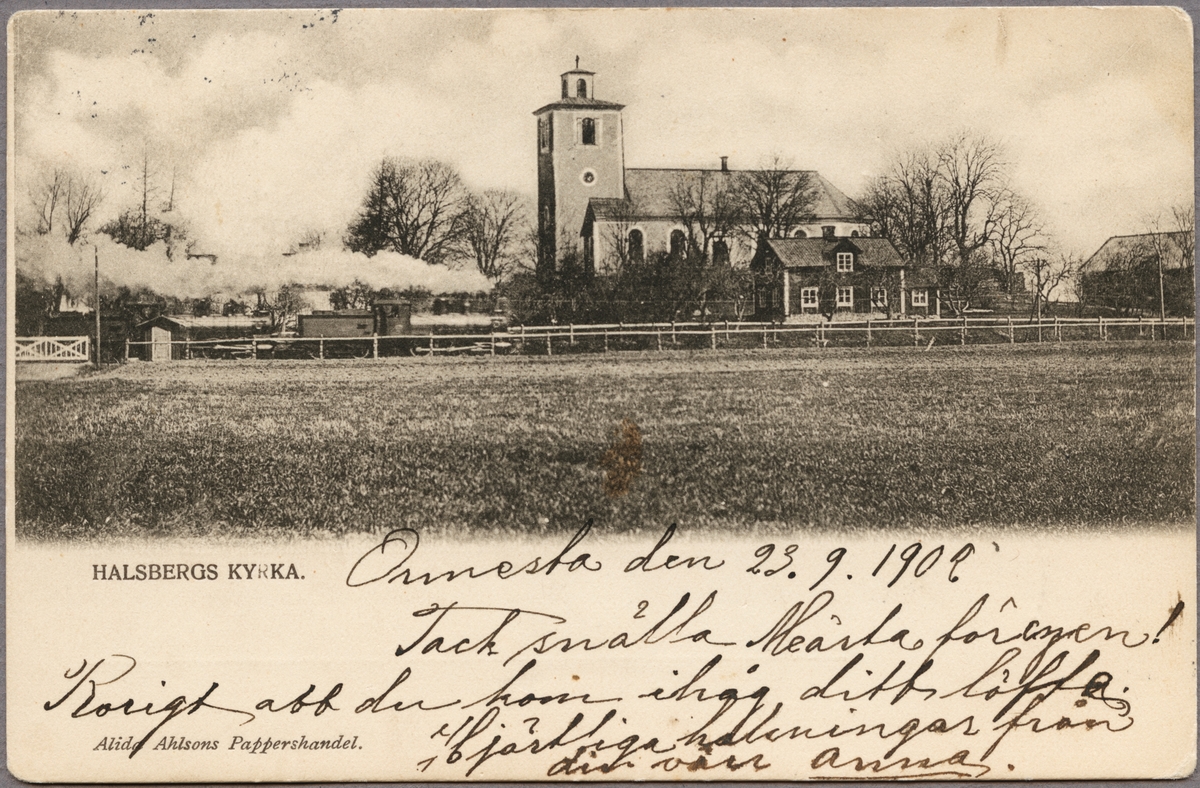 HALSBERGS KYRKA.
Ormesta den 23. 9. 1902
Tack snälla Märta för cyen!
Rorigt att du kom ihåg ditt löfte.
Hjärtliga hälsningar från
din vän Anna.
Alida Ahlsons Pappershandel.